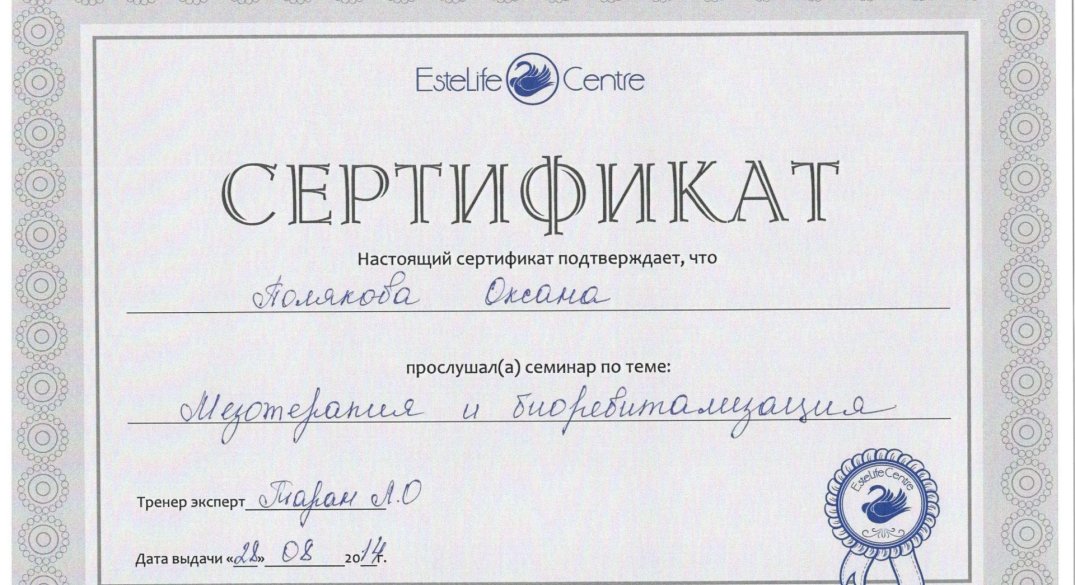 EsteLife Centre
СЕРТИФИКАТ
Настоящий сертификат подтверждает, что
Полякова Оксана
прослушал(а) семинар по теме:
Мезотерапия и биоревитализация
Тренер эксперт Таран Л.О
Дата выдачи «28» 08 2014г.
EsteLifeCentre